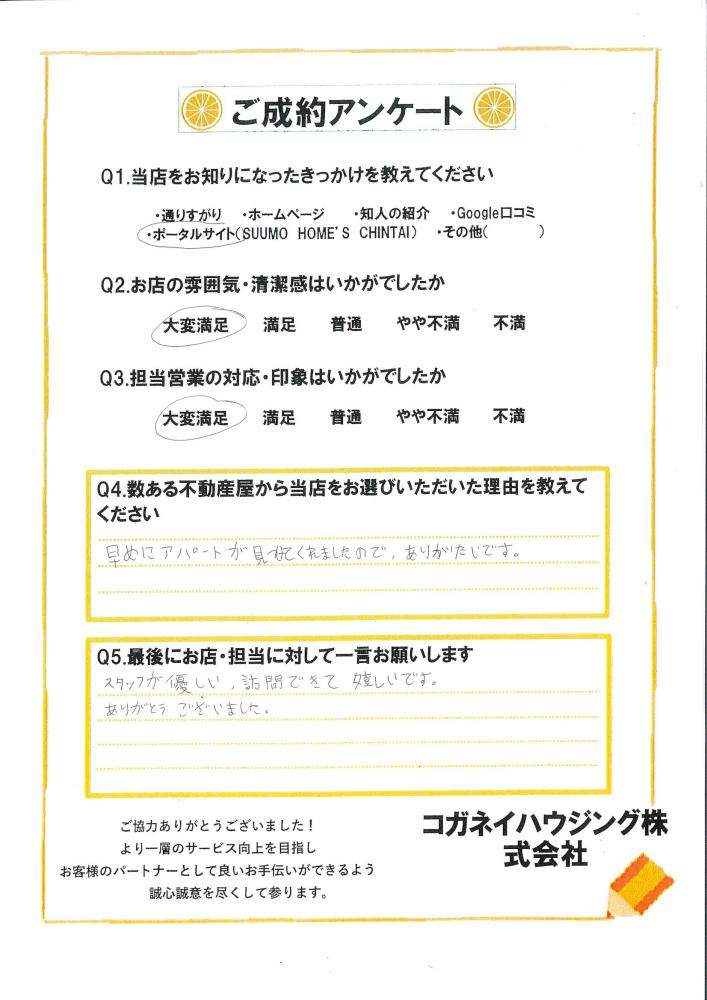 ご成約アンケート
Q1.当店をお知りになったきっかけを教えてください
・通りすがり ・ホームページ ・知人の紹介 ・Google口コミ
・ポータルサイト(SUUMO HOME'S CHINTAI) ・その他( )
Q2.お店の雰囲気・清潔感はいかがでしたか
大変満足 満足 普通 やや不満 不満
Q3.担当営業の対応・印象はいかがでしたか
大変満足 満足 普通 やや不満 不満
Q4.数ある不動産屋から当店をお選びいただいた理由を教えて
ください
早めにアパートが見つけてくれましたので、ありがたいです。
Q5.最後にお店・担当に対して一言お願いします
スタッフが優しい、訪問できて嬉しいです。
ありがとうございました。
ご協力ありがとうございました！
より一層のサービス向上を目指し
お客様のパートナーとして良いお手伝いができるよう
誠心誠意を尽くして参ります。
コガネイハウジング株
式会社